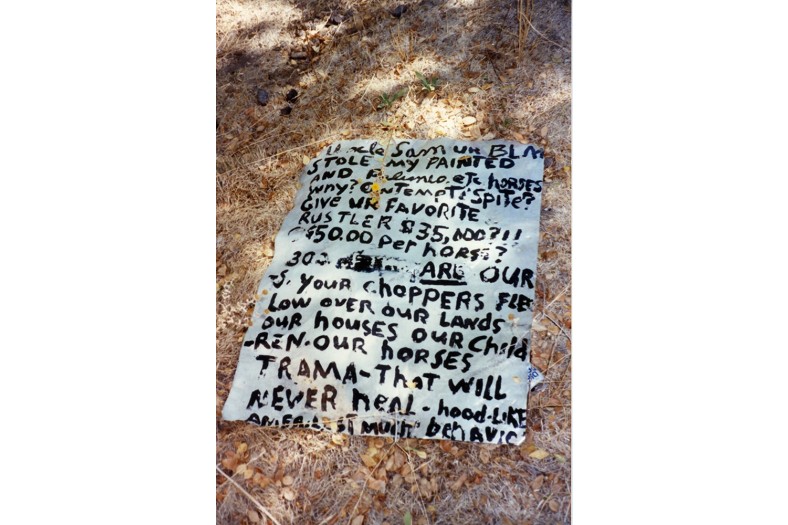 Uncle Sam UR BLM
STOLE MY PAINTED
AND etc HORSES
WHY? CONTEMPT? SPITE?
GIVE UR FAVORITE
RUSTLER $35,000?!!
$50.00 Per horse?
302 ARE OUR
YOUR CHOPPERS FLE
LOW OVER OUR LANDS
OUR houses OUR Child
-REN-OUR horses
TRAMA-THAT WILL
NEVER heal-hood-LIKE
MUCH behAVIO